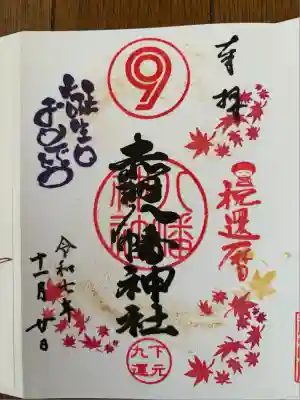 奉拝
祝還暦
9
八幡神社
八幡神社
下元
九運
誕生日
おめでとう
令和七年
十一月廿日